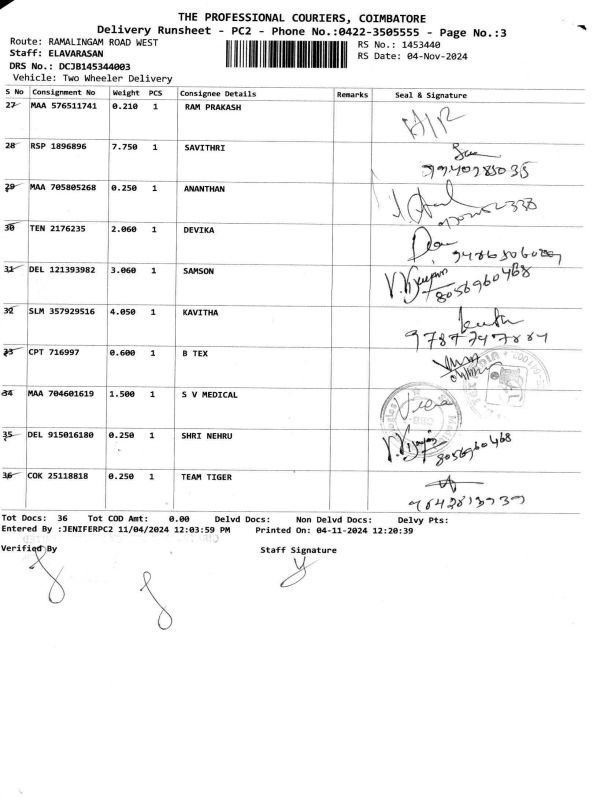 THE PROFESSIONAL COURIERS, COIMBATORE
Delivery Runsheet - PC2 - Phone No.:0422-3505555 - Page No.:3
Route: RAMALINGAM ROAD WEST
RS No.: 1453440
Staff: ELAVARASAN
RS Date: 04-Nov-2024
DRS No.: DCJB145344003
Vehicle: Two Wheeler Delivery
S No Consignment No Weight PCS Consignee Details Remarks Seal & Signature
27 MAA 576511741 0.210 1 RAM PRAKASH
28 RSP 1896896 7.750 1 SAVITHRI
29 MAA 705805268 0.250 1 ANANTHAN
30 TEN 2176235 2.060 1 DEVIKA
31 DEL 121393982 3.060 1 SAMSON
8056960468
32 SLM 357929516 4.050 1 KAVITHA
33 CPT 716997 0.600 1 B TEX
34 MAA 704601619 1.500 1 S V MEDICAL
35 DEL 915016180 0.250 1 SHRI NEHRU
8056960468
36 COK 25118818 0.250 1 TEAM TIGER
Tot Docs: 36 Tot COD Amt: 0.00 Delvd Docs: Non Delvd Docs: Delvy Pts:
Entered By :JENIFERPC2 11/04/2024 12:03:59 PM Printed On: 04-11-2024 12:20:39
Verified By Staff Signature